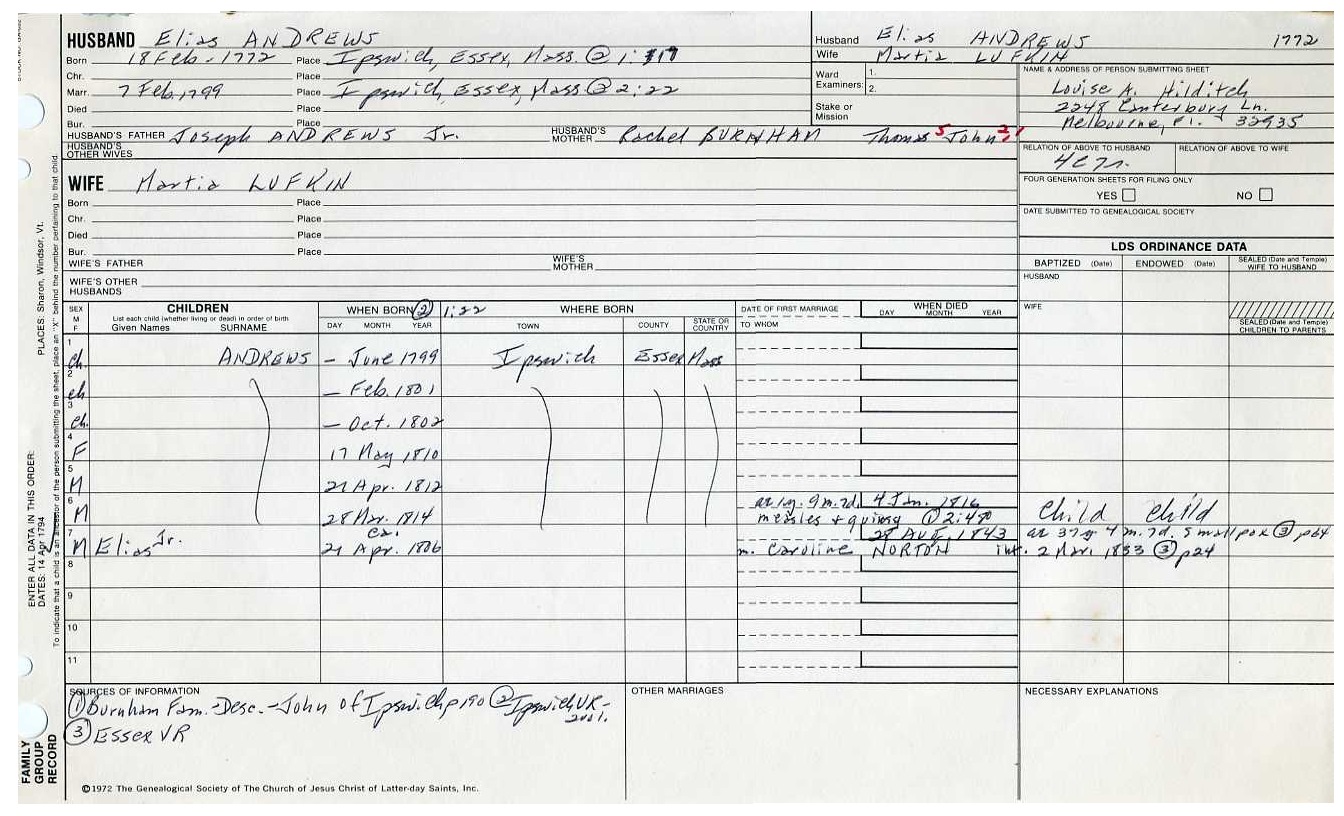 HUSBAND Elias ANDREWS
Born 18 Feb-1772 Place Ipswich, Essex, Mass. @ 1:
Chr. Place
Marr. 7 Feb, 1799 Place Ipswich, Essex, Mass @ 2:22
Died Place
Bur. Place
HUSBAND'S FATHER Joseph ANDREWS Jr. HUSBAND'S MOTHER Rachel BURNHAM Thomas 5 John
HUSBAND'S OTHER WIVES
Husband Elias ANDREWS 1772
Wife Martia LUFKIN
Ward Examiners: 1.
2.
Stake or Mission
NAME & ADDRESS OF PERSON SUBMITTING SHEET
Louise A. Hilditch
2248 Canterbury Ln.
Melbourne, Fl. 32935
RELATION OF ABOVE TO HUSBAND RELATION OF ABOVE TO WIFE
FOUR GENERATION SHEETS FOR FILING ONLY
YES NO
DATE SUBMITTED TO GENEALOGICAL SOCIETY
WIFE Martia LUFKIN
Born Place
Chr. Place
Died Place
Bur. Place
WIFE'S FATHER WIFE'S MOTHER
WIFE'S OTHER HUSBANDS
LDS ORDINANCE DATA
BAPTIZED (Date) ENDOWED (Date) SEALED (Date and Temple) WIFE TO HUSBAND
HUSBAND
WIFE
SEALED (Date and Temple) CHILDREN TO PARENTS
SEX M F
CHILDREN
List each child (whether living or dead) in order of birth
Given Names SURNAME
WHEN BORN ② 1:22 WHERE BORN
DAY MONTH YEAR TOWN COUNTY STATE OR COUNTRY
DATE OF FIRST MARRIAGE
TO WHOM
WHEN DIED
DAY MONTH YEAR
1 ch. ANDREWS - June 1799 Ipswich Essex Mass
2 ch - Feb. 1801
3 ch. - Oct. 1802
4 F 17 May 1810
5 M 21 Apr. 1812
6 M 28 Mar. 1814 ae 1y. 9m. 7d. 4 Jan. 1816 child child
measles + quinsy ② 2:480
7 M Elias Jr. ca. 21 Apr. 1806 28 AUG. 1843 ae 37y 4 m. 7d. Small pox ③ p64
m. Caroline NORTON int. 2 Mar. 1833 ③ p24
8
9
10
11
SOURCES OF INFORMATION
① Burnham Fam.-Desc.-John of Ipswich p190 ② Ipswich VR-
③ Essex VR
OTHER MARRIAGES
NECESSARY EXPLANATIONS
©1972 The Genealogical Society of The Church of Jesus Christ of Latter-day Saints, Inc.
ENTER ALL DATA IN THIS ORDER:
DATES: 14 Apr 1794 PLACES: Sharon, Windsor, Vt.
To indicate that a child is an ancestor of the person submitting the sheet, place an "X" behind the number pertaining to that child.
FAMILY GROUP RECORD